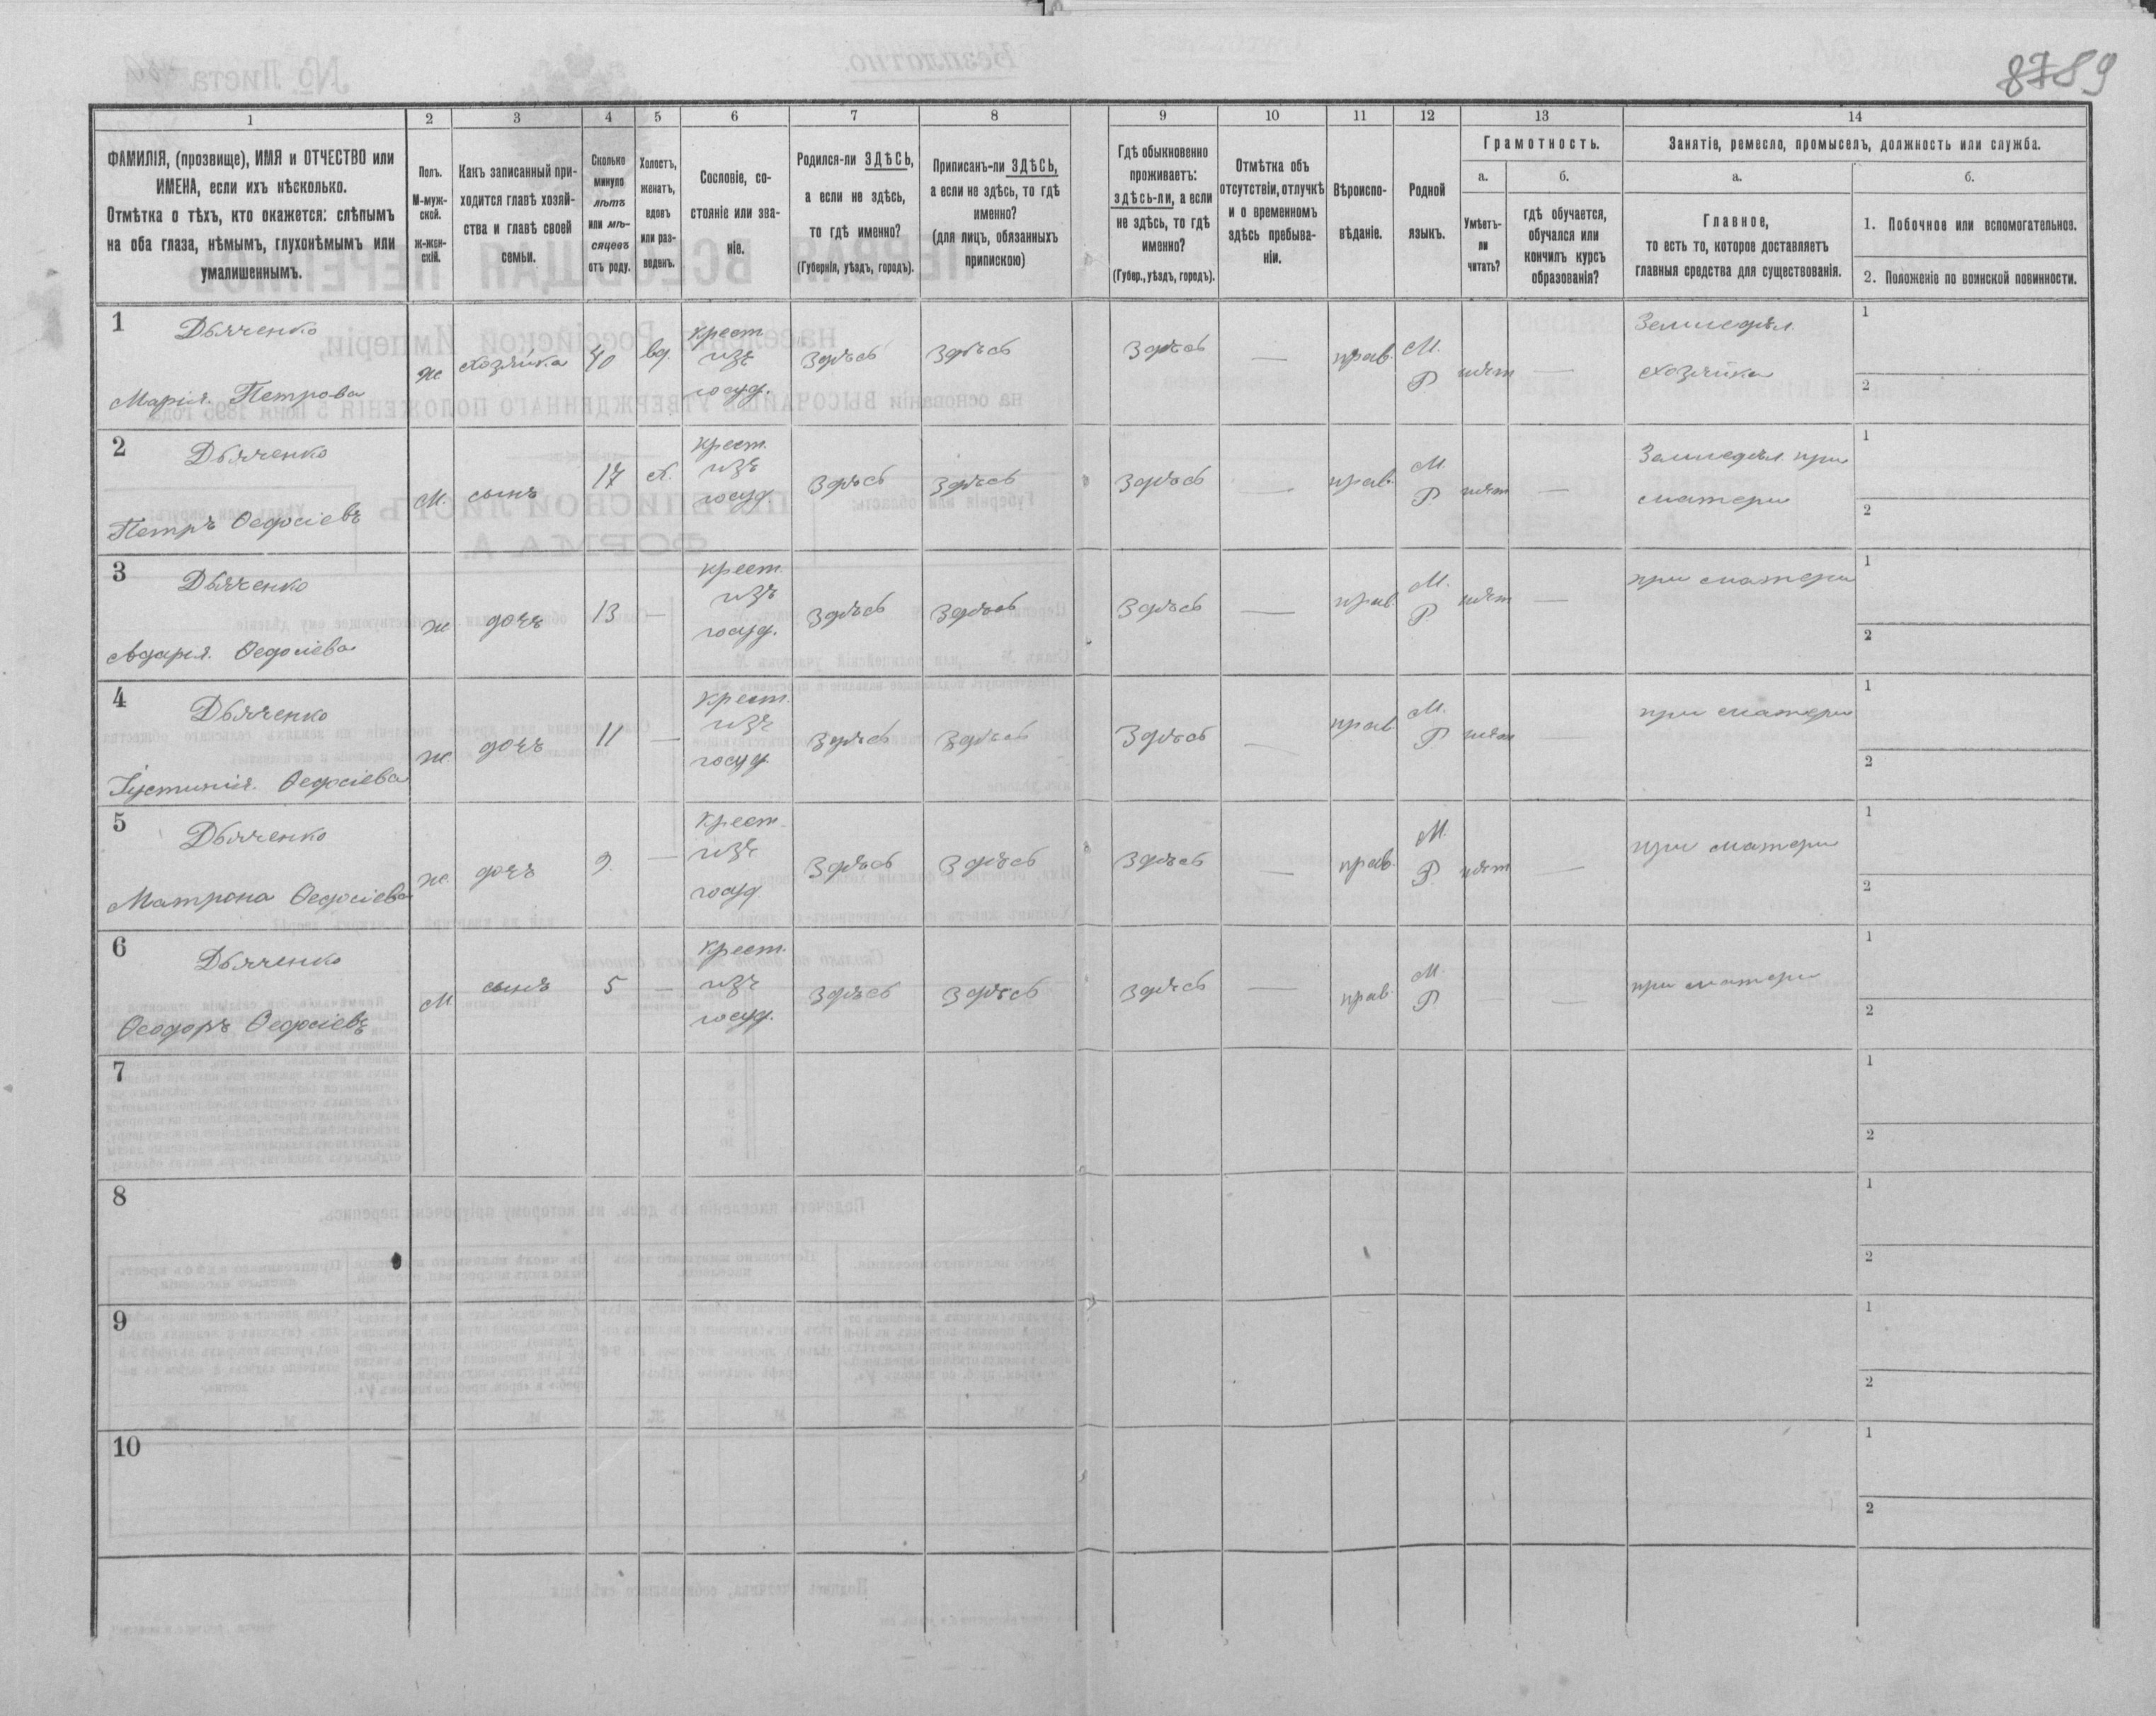 8789
1 2 3 4 5 6 7 8 9 10 11 12 13 14
ФАМИЛІЯ, (прозвище), ИМЯ и ОТЧЕСТВО или
ИМЕНА, если ихъ нѣсколько.
Отмѣтка о тѣхъ, кто окажется: слѣпымъ
на оба глаза, нѣмымъ, глухонѣмымъ или
умалишеннымъ.
Полъ.
М-муж-
ской.
Ж-жен-
скій.
Какъ записанный при-
ходится главѣ хозяй-
ства и главѣ своей
семьи.
Сколько
минуло
лѣтъ
или мѣ-
сяцевъ
отъ роду.
Холостъ,
женатъ,
вдовъ
или раз-
веденъ.
Сословіе, со-
стояніе или зва-
ніе.
Родился-ли ЗДѢСЬ,
а если не здѣсь,
то гдѣ именно?
(Губернія, уѣздъ, городъ).
Приписанъ-ли ЗДѢСЬ,
а если не здѣсь, то гдѣ
именно?
(для лицъ, обязанныхъ
припискою)
Гдѣ обыкновенно
проживаетъ:
здѣсь-ли, а если
не здѣсь, то гдѣ
именно?
(Губер., уѣздъ, городъ).
Отмѣтка объ
отсутствіи, отлучкѣ
и о временномъ
здѣсь пребыва-
ніи.
Вѣроиспо-
вѣданіе.
Родной
языкъ.
Грамотность.
а.
Умѣетъ-
ли
читать?
б.
гдѣ обучается,
обучался или
кончилъ курсъ
образованія?
Занятіе, ремесло, промыселъ, должность или служба.
а.
Главное,
то есть то, которое доставляетъ
главныя средства для существованія.
б.
1. Побочное или вспомогательное.
2. Положеніе по воинской повинности.
1 Дьяченко
Марія Петрова
ж хозяйка 40 вд. крест. изъ госуд. здѣсь здѣсь здѣсь — прав. М. Р нѣт — Земледѣл. хозяйка
1
2
2 Дьяченко
Петръ Ѳедосіевъ
М. сынъ 17 х. крест. изъ госуд. здѣсь здѣсь здѣсь — прав. М. Р нѣт — Земледѣл. при матери
1
2
3 Дьяченко
Ѳедосіева
ж дочь 13 — крест. изъ госуд. здѣсь здѣсь здѣсь — прав. М. Р нѣт — при матери
1
2
4 Дьяченко
Іустинія. Ѳедосіева
ж дочь 11 — крест. изъ госуд. здѣсь здѣсь здѣсь — прав. М. Р нѣт — при матери
1
2
5 Дьяченко
Матрона Ѳедосіева
ж. дочь 9 — крест. изъ госуд. здѣсь здѣсь здѣсь — прав. М. Р нѣт — при матери
1
2
6 Дьяченко
Ѳеодоръ Ѳедосіевъ
М сынъ 5 — крест. изъ госуд. здѣсь здѣсь здѣсь — прав. М. Р — — при матери
1
2
7
1
2
8
1
2
9
1
2
10
1
2